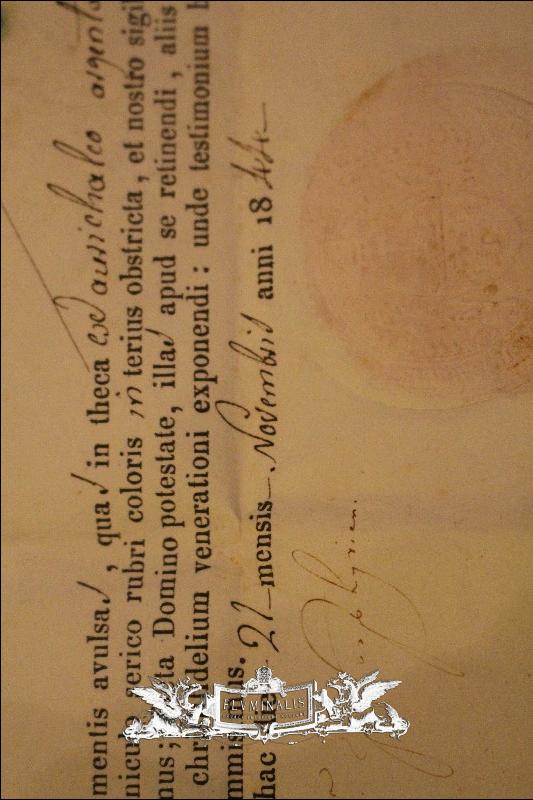 mentis avulsa, qua in theca ex aurichalco argento
nicu serico rubri coloris interius obstricta, et nostro sigi
nus; ta Domino potestate, illa apud se retinendi, aliis
chr delium venerationi exponendi: unde testimonium
mmi us.
hac 21 mensis Novembris anni 18
FLVMINALIS